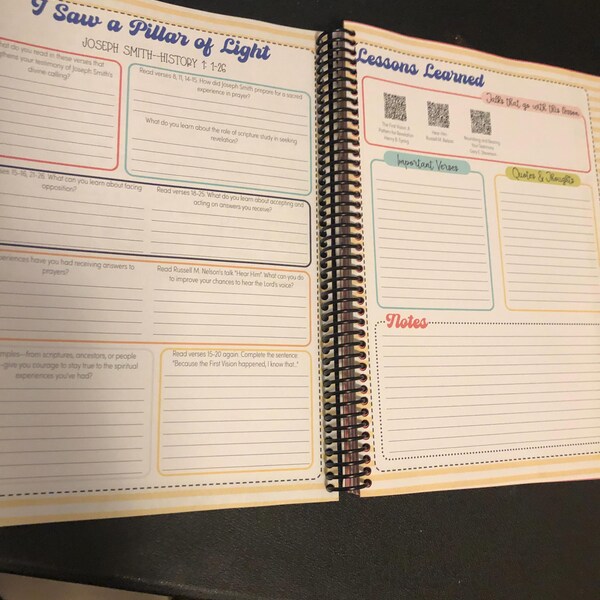 I Saw a Pillar of Light
JOSEPH SMITH--HISTORY 1: 1-26
do you read in these verses that
strengthens your testimony of Joseph Smith's
divine calling?
Read verses 8, 11, 14-15. How did Joseph Smith prepare for a sacred
experience in prayer?
What do you learn about the role of scripture study in seeking
revelation?
21-26. What can you learn about facing
opposition?
Read verses 18-25. What do you learn about accepting and
acting on answers you receive?
experiences have you had receiving answers to
prayers?
Read Russell M. Nelson's talk "Hear Him". What can you do
to improve your chances to hear the Lord's voice?
from scriptures, ancestors, or people
give you courage to stay true to the spiritual
experiences you've had?
Read verses 15-20 again. Complete the sentence
"Because the First Vision happened, I know that..."
Lessons Learned
Talks that go with this lesson
The First Vision: A
Pattern for Revelation
Henry B. Eyring
Hear Him
Russell M. Nelson
Nourishing and Bearing
Your Testimony
Gary E. Stevenson
Important Verses
Quotes & Thoughts
Notes